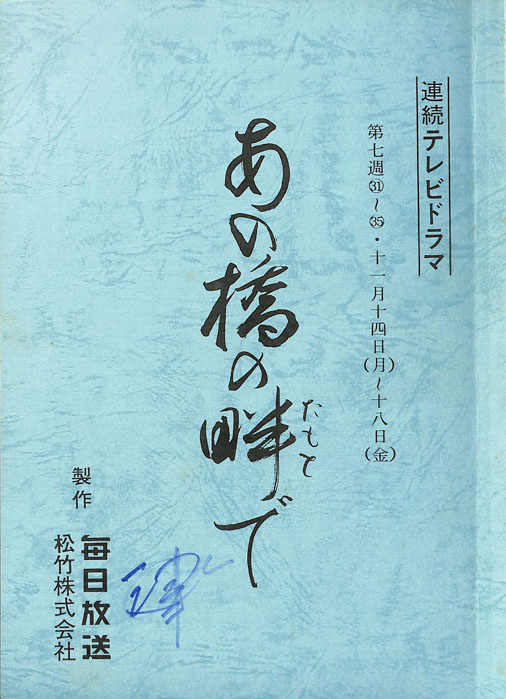 連続テレビドラマ
第七週㉛〜㉟・十一月十四日(月)〜十八日(金)
あの橋の畔で
たもと
製作
毎日放送
松竹株式会社